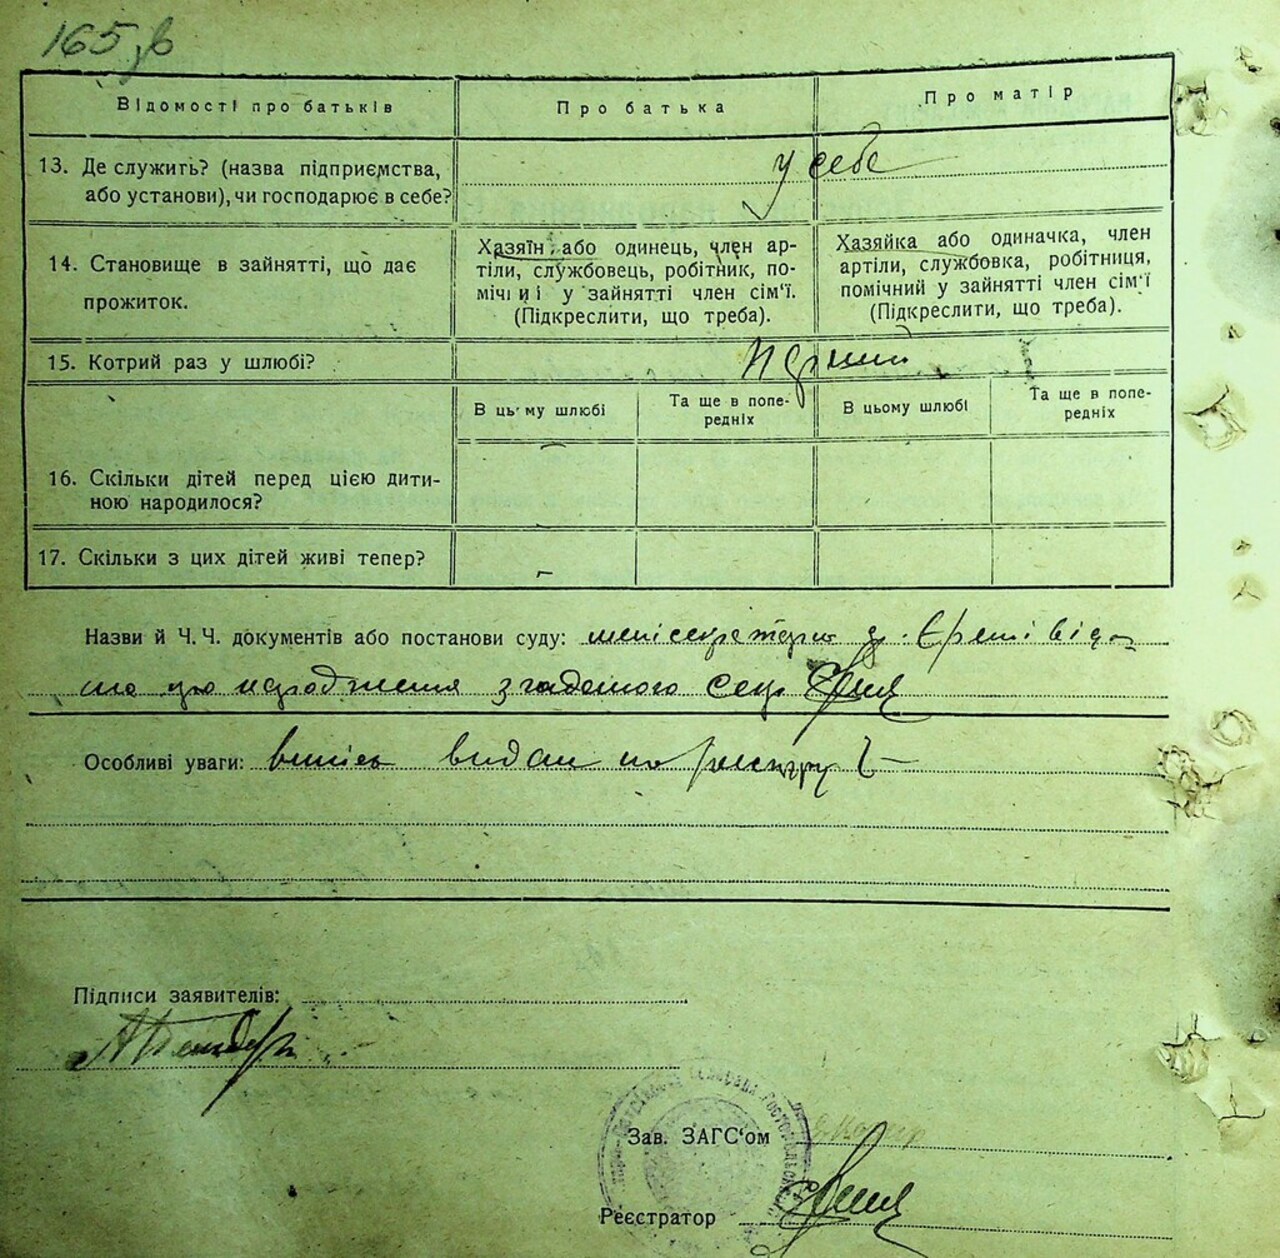 165 зв
Відомості про батьків
Про батька
Про матір
13. Де служить? (назва підприємства,
або установи), чи господарює в себе?
у себе
14. Становище в зайнятті, що дає
прожиток.
Хазяїн, або одинець, член ар-
тілі, службовець, робітник, по-
мічний у зайнятті член сім'ї.
(Підкреслити, що треба).
Хазяйка або одиначка, член
артілі, службовка, робітниця,
помічний у зайнятті член сім'ї
(Підкреслити, що треба).
15. Котрий раз у шлюбі?
Перший
В цьому шлюбі
Та ще в попе-
редніх
В цьому шлюбі
Та ще в попе-
редніх
16. Скільки дітей перед цією дити-
ною народилося?
–
17. Скільки з цих дітей живі тепер?
–
Назви й Ч.Ч. документів або постанови суду: мені секретарю
про народження згаданого
Особливі уваги: випись видан по реєстру
Підписи заявителів:
Зав. ЗАГС'ом
Реєстратор